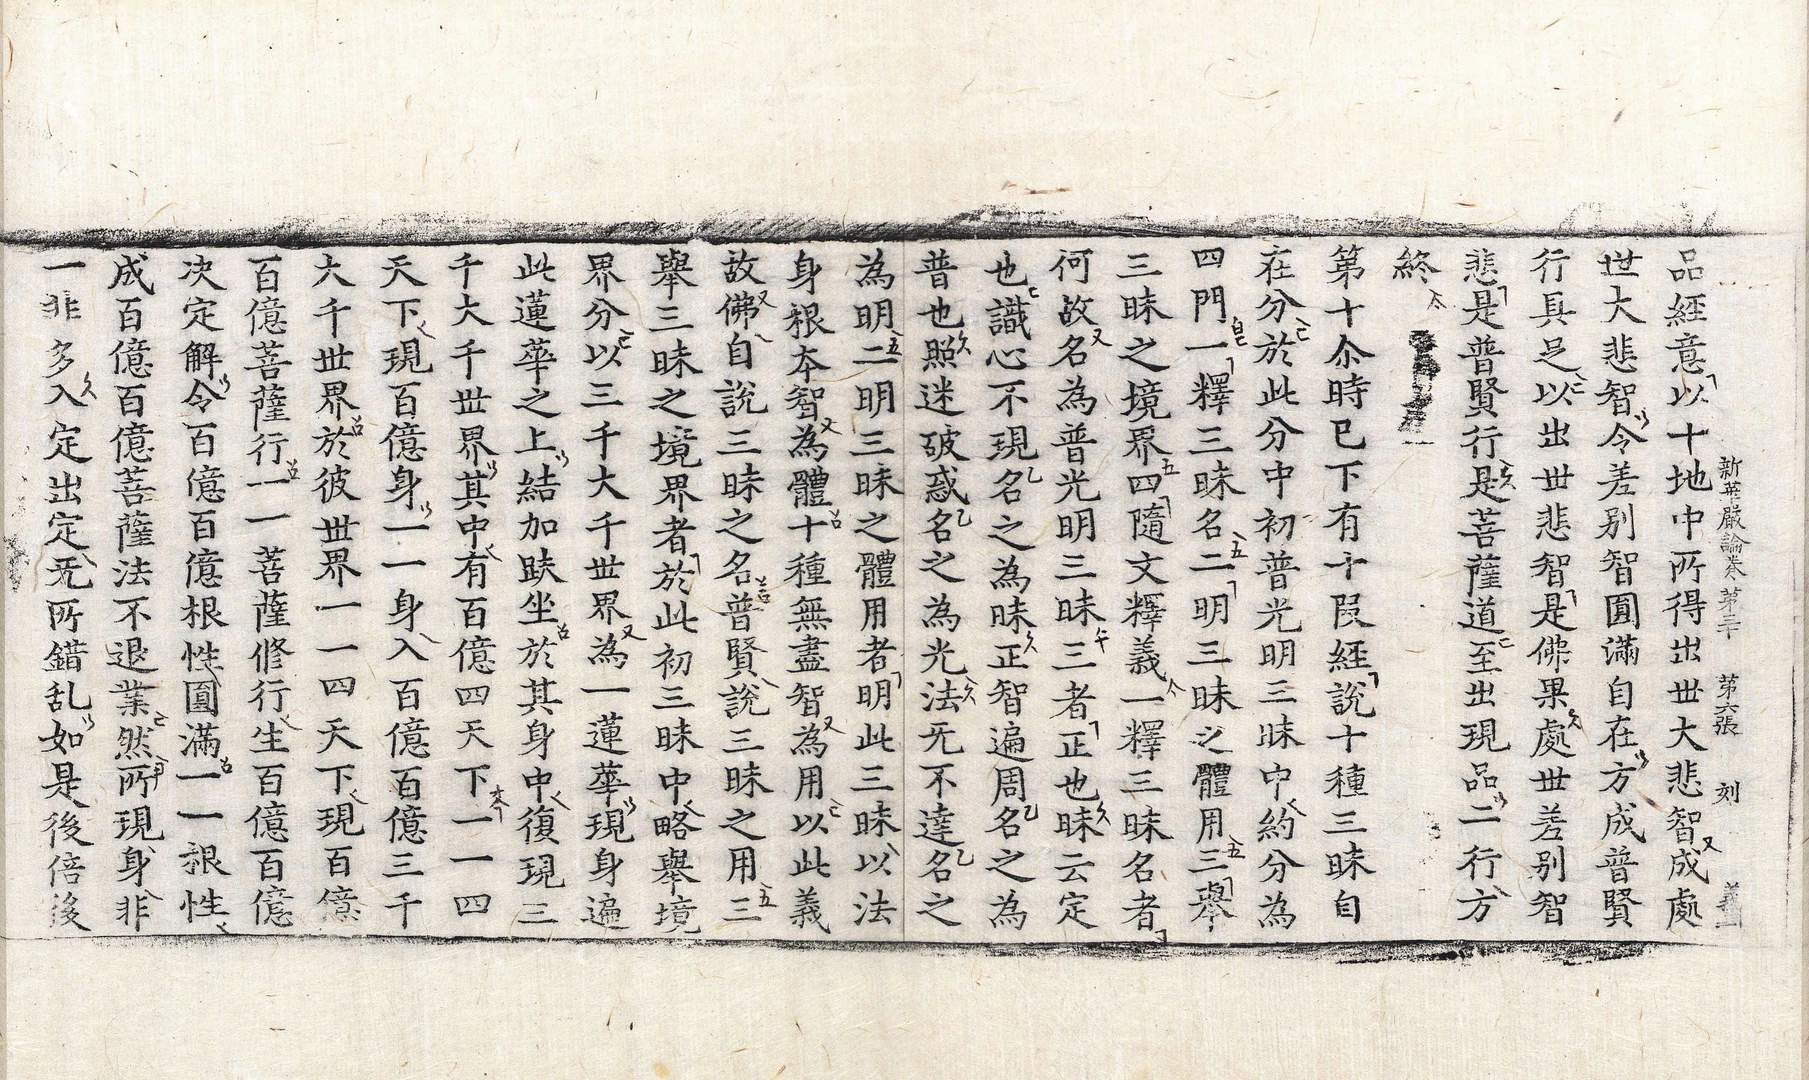 新華嚴論卷第三十 第六張 刻 義
品經意以十地中所得出世大悲智成處
世大悲智令差别智圓滿自在方成普賢
行具足以出世悲智是佛果處世差别智
悲是普賢行是菩薩道至出現品二行方
終
第十尒時已下有十段經說十種三昧自
在分於此分中初普光明三昧中約分為
四門一釋三昧名二明三昧之體用三舉
三昧之境界四隨文釋義一釋三昧名者
何故名為普光明三昧三者正也昧云定
也識心不現名之為昧正智遍周名之為
普也照迷破惑名之為光法无不達名之
為明二明三昧之體用者明此三昧以法
身根本智為體十種無盡智為用以此義
故佛自說三昧之名普賢說三昧之用三
舉三昧之境界者於此初三昧中略舉境
界分以三千大千世界為一蓮華現身遍
此蓮華之上結加趺坐於其身中復現三
千大千世界其中有百億四天下一一四
天下現百億身一一身入百億百億三千
大千世界於彼世界一一四天下現百億
百億菩薩行一一菩薩修行生百億百億
决定解令百億百億根性圓滿一一根性
成百億百億菩薩法不退業然所現身非
一非多入定出定无所錯乱如是後倍後